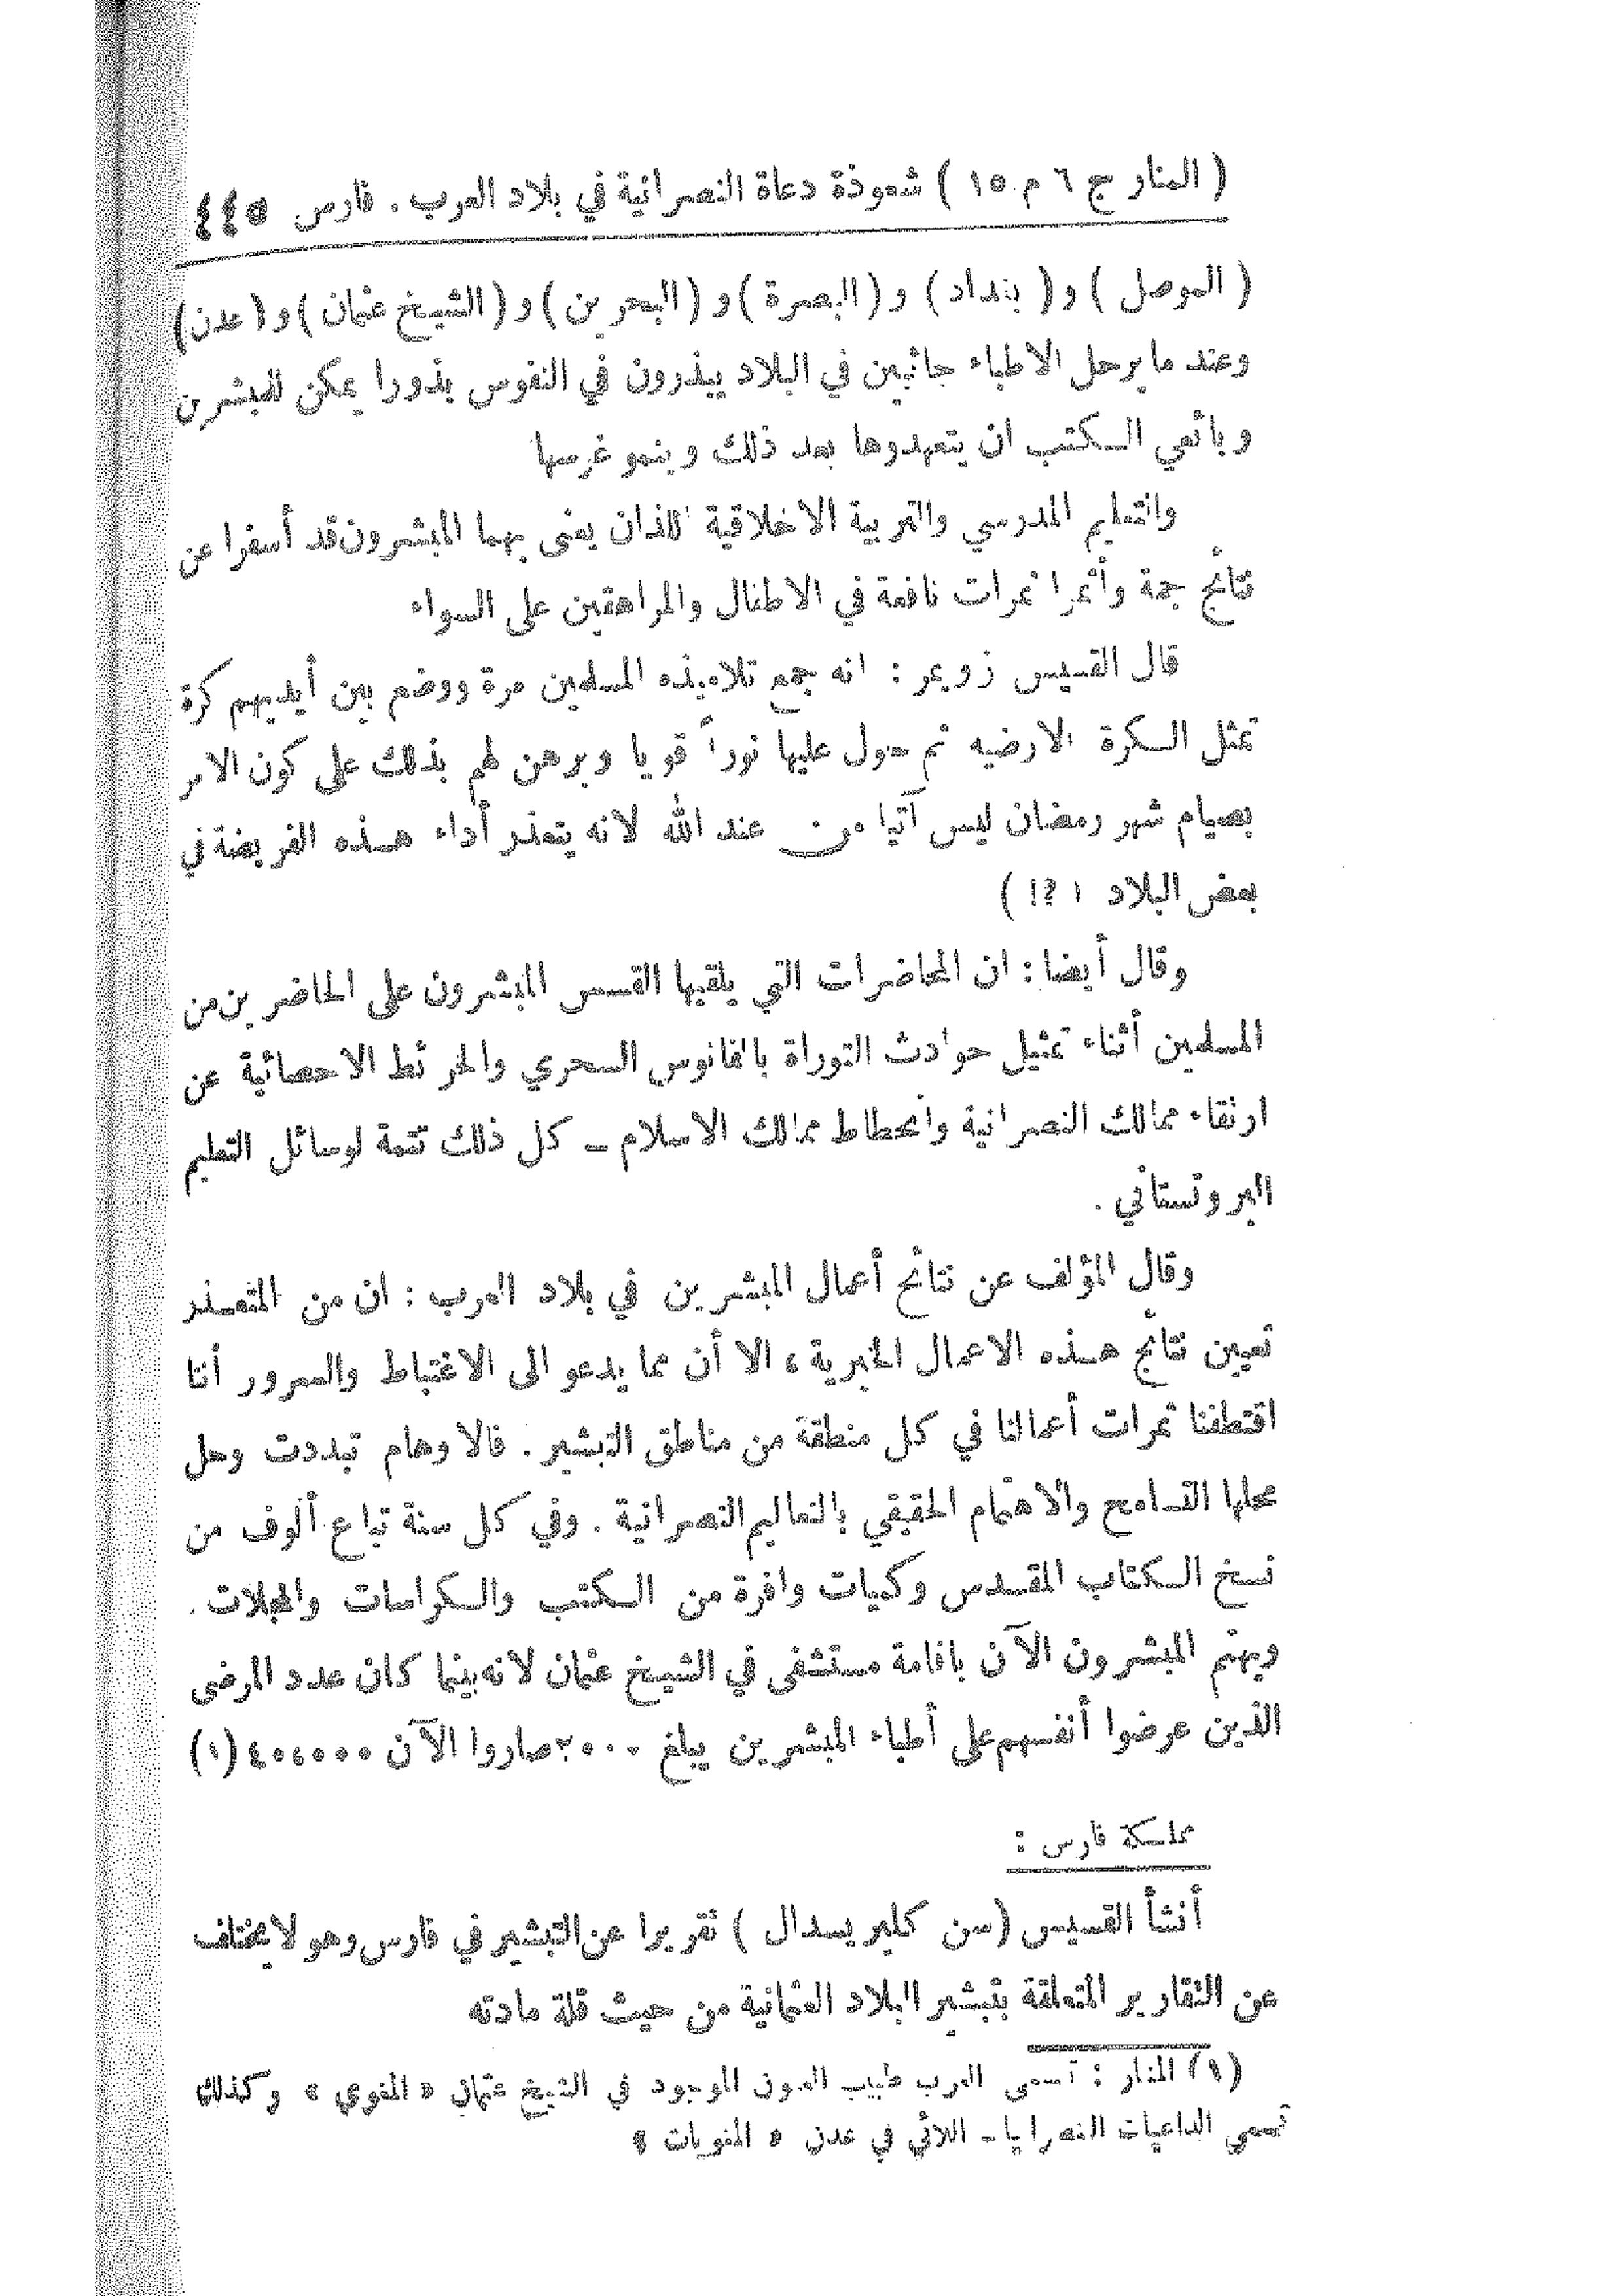 ( المنار ج ٦ م ١٥ ) شعوذة دعاة النصرانية في بلاد العرب . فارس ٤٤٥
( الموصل ) و( بغداد ) و ( البصرة ) و ( البحرين ) و ( الشيخ عثمان ) و (عدن)
وعند ما يرحل الاطباء جائبين في البلاد يبذرون في النفوس بذورا يمكن للمبشرين
وبائعي الكتب ان يتعهدوها بعد ذلك وينمو غرسها
والتعليم المدرسي والتربية الاخلاقية اللذان يعنى بهما المبشرون قد أسفرا عن
نتائج جمة وأثمرا ثمرات نافعة في الاطفال والمراهقين على السواء
قال القسيس زويمر : انه جمع تلاميذه المسلمين مرة ووضع بين أيديهم كرة
تمثل الكرة الارضيه ثم حول عليها نوراً قويا وبرهن لهم بذلك على كون الامر
بصيام شهر رمضان ليس آتيا من عند الله لانه يتعذر أداء هذه الفريضة في
بعض البلاد ( ?! )
وقال أيضا : ان المحاضرات التي يلقيها القسس المبشرون على الحاضرين من
المسلمين أثناء تمثيل حوادث التوراة بالفانوس السحري والخرائط الاحصائية عن
ارتقاء ممالك النصرانية وانحطاط ممالك الاسلام ــ كل ذلك تتمة لوسائل التعليم
البروتستاني .
وقال المؤلف عن نتائج أعمال المبشرين في بلاد العرب : ان من المتعذر
تعيين نتائج هذه الاعمال الخيرية ، الا أن مما يدعو الى الاغتباط والسرور أننا
اقتطفنا ثمرات أعمالنا في كل منطقة من مناطق التبشير . فالاوهام تبددت وحل
محلها التسامح والاهتمام الحقيقي بالتعاليم النصرانية . وفي كل سنة تباع ألوف من
نسخ الكتاب المقدس وكميات وافرة من الكتب والكراسات والمجلات .
ويهتم المبشرون الآن باقامة مستشفى في الشيخ عثمان لانه بينما كان عدد المرضى
الذين عرضوا أنفسهم على أطباء المبشرين يبلغ ٢٠٠٠ صاروا الآن ٤٠،٠٠٠ (١)
مملكة فارس :
أنشأ القسيس (سن كلير يسدال ) تقريرا عن التبشير في فارس وهو لا يختلف
عن التقارير المتعلقة بتبشير البلاد العثمانية من حيث قلة مادته
(١) المنار : تسمى العرب طبيب العيون الموجود في الشيخ عثمان « المغوي » وكذلك
تسمي الداعيات النصرايا ــ اللائي في عدن « المغويات »